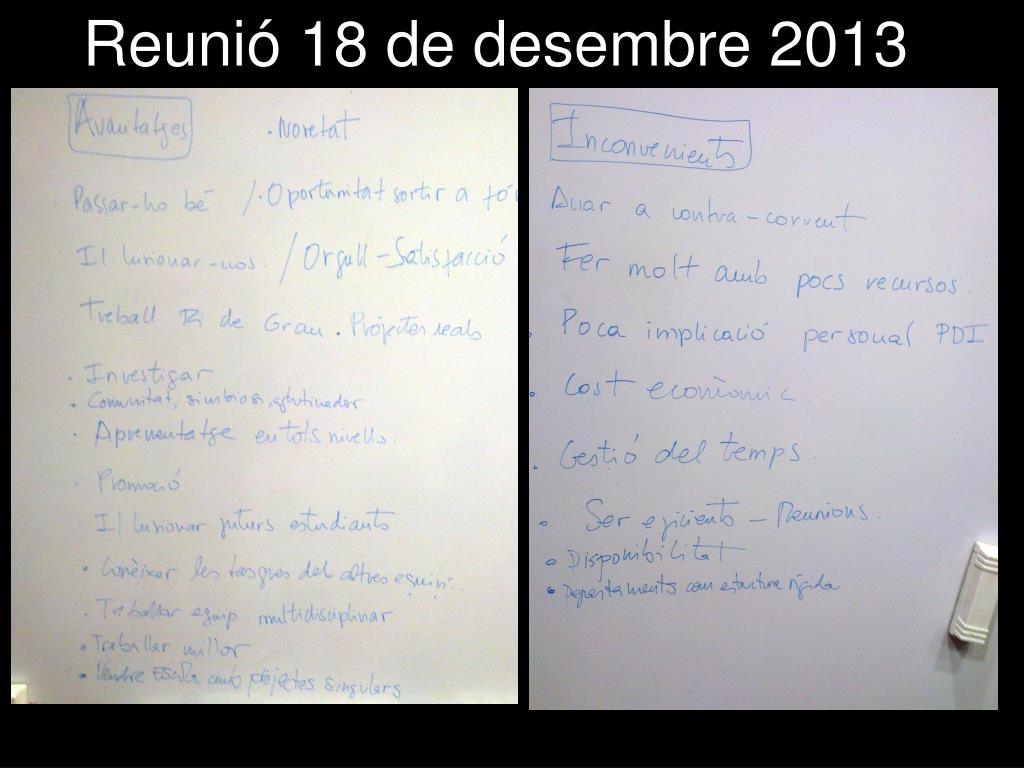 Reunió 18 de desembre 2013
Avantatges
. Novetat
. Passar-ho bé / . Oportunitat sortir a
. Il·lusionar-nos. / Orgull - Satisfacció
Treball Fi de Grau . Projectes reals
. Investigar
. Comunitat, simbiosi, aglutinador
. Aprenentatge en tots nivells.
. Promoció
Il·lusionar futurs estudiants
. Conèixer les tasques del altres equips.
. Treballar equip multidisciplinar
. Treballar millor
. Vendre Escola amb projectes singulars
Inconvenients
Anar a contra-corrent
Fer molt amb pocs recursos.
. Poca implicació personal PDI
. Cost econòmic.
. Gestió del temps.
. Ser eficients - Reunions.
. Disponibilitat
. Departaments com estructura rígida